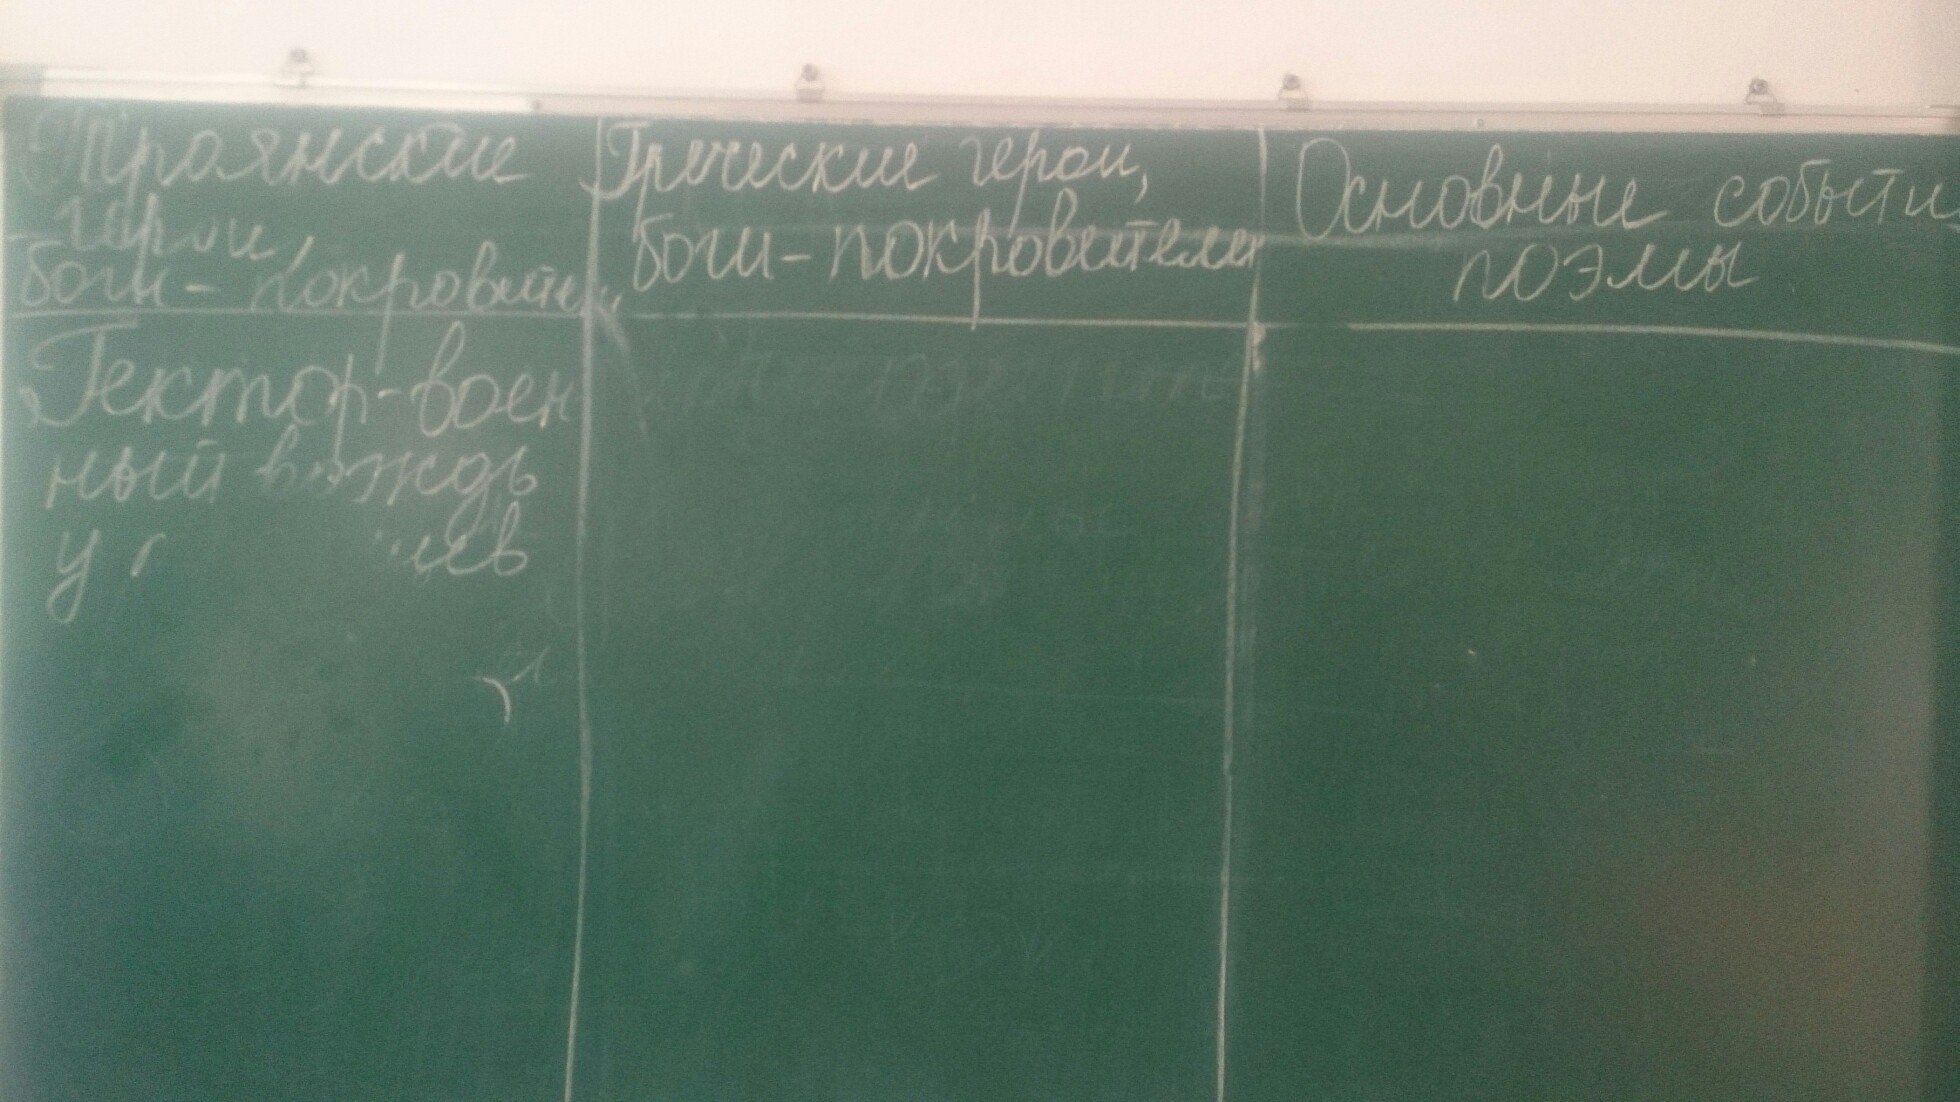 Троянские
герои,
боги-покровители
Греческие герои,
боги-покровители
Основные событи
поэмы
Гектор-воен
ный вождь
у